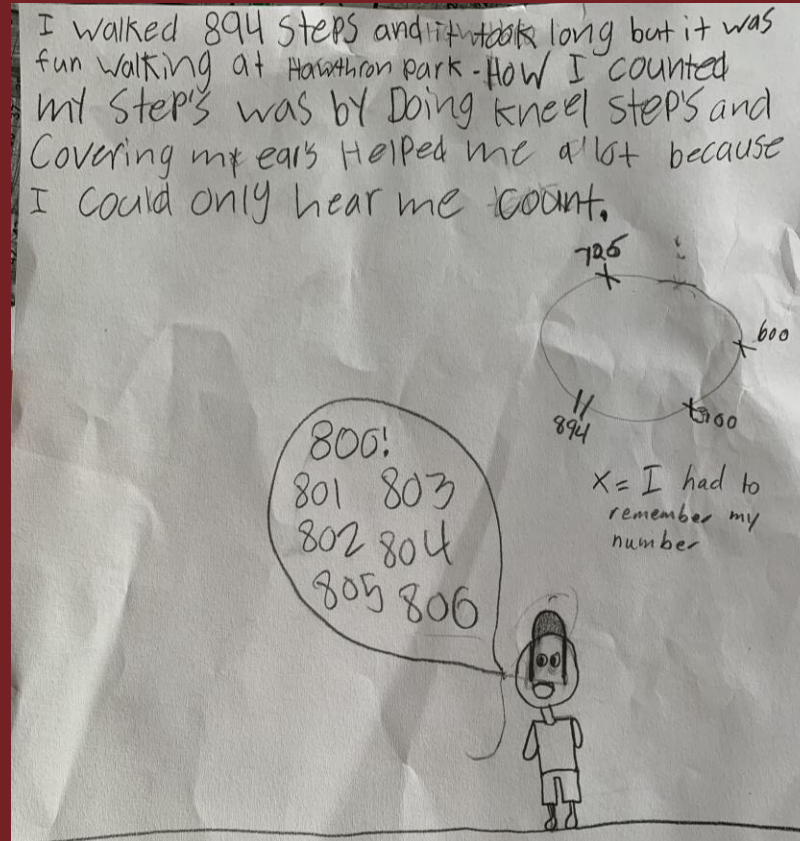 I walked 894 Steps and it took long but it was
fun walking at Hawthron park - How I counted
my Step's was by Doing kneel step's and
Covering my ears Helped me a lot because
I could only hear me count.
725
600
894
800!
801 803
802 804
805 806
X = I had to
remember my
number